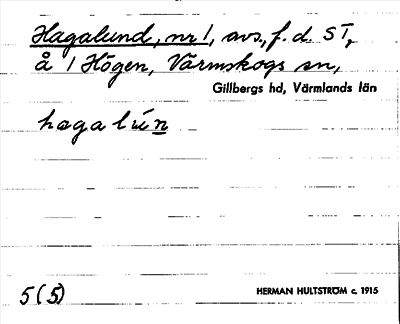 Hagalund, nr 1, avs., f. d. ST,
å 1 Högen, Värmskogs sn,
Gillbergs hd, Värmlands län
hagalún
5(5)
HERMAN HULTSTRÖM c. 1915